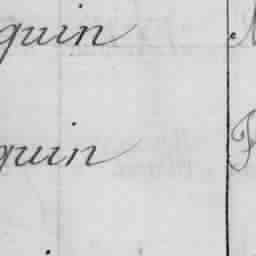 quin
quin F